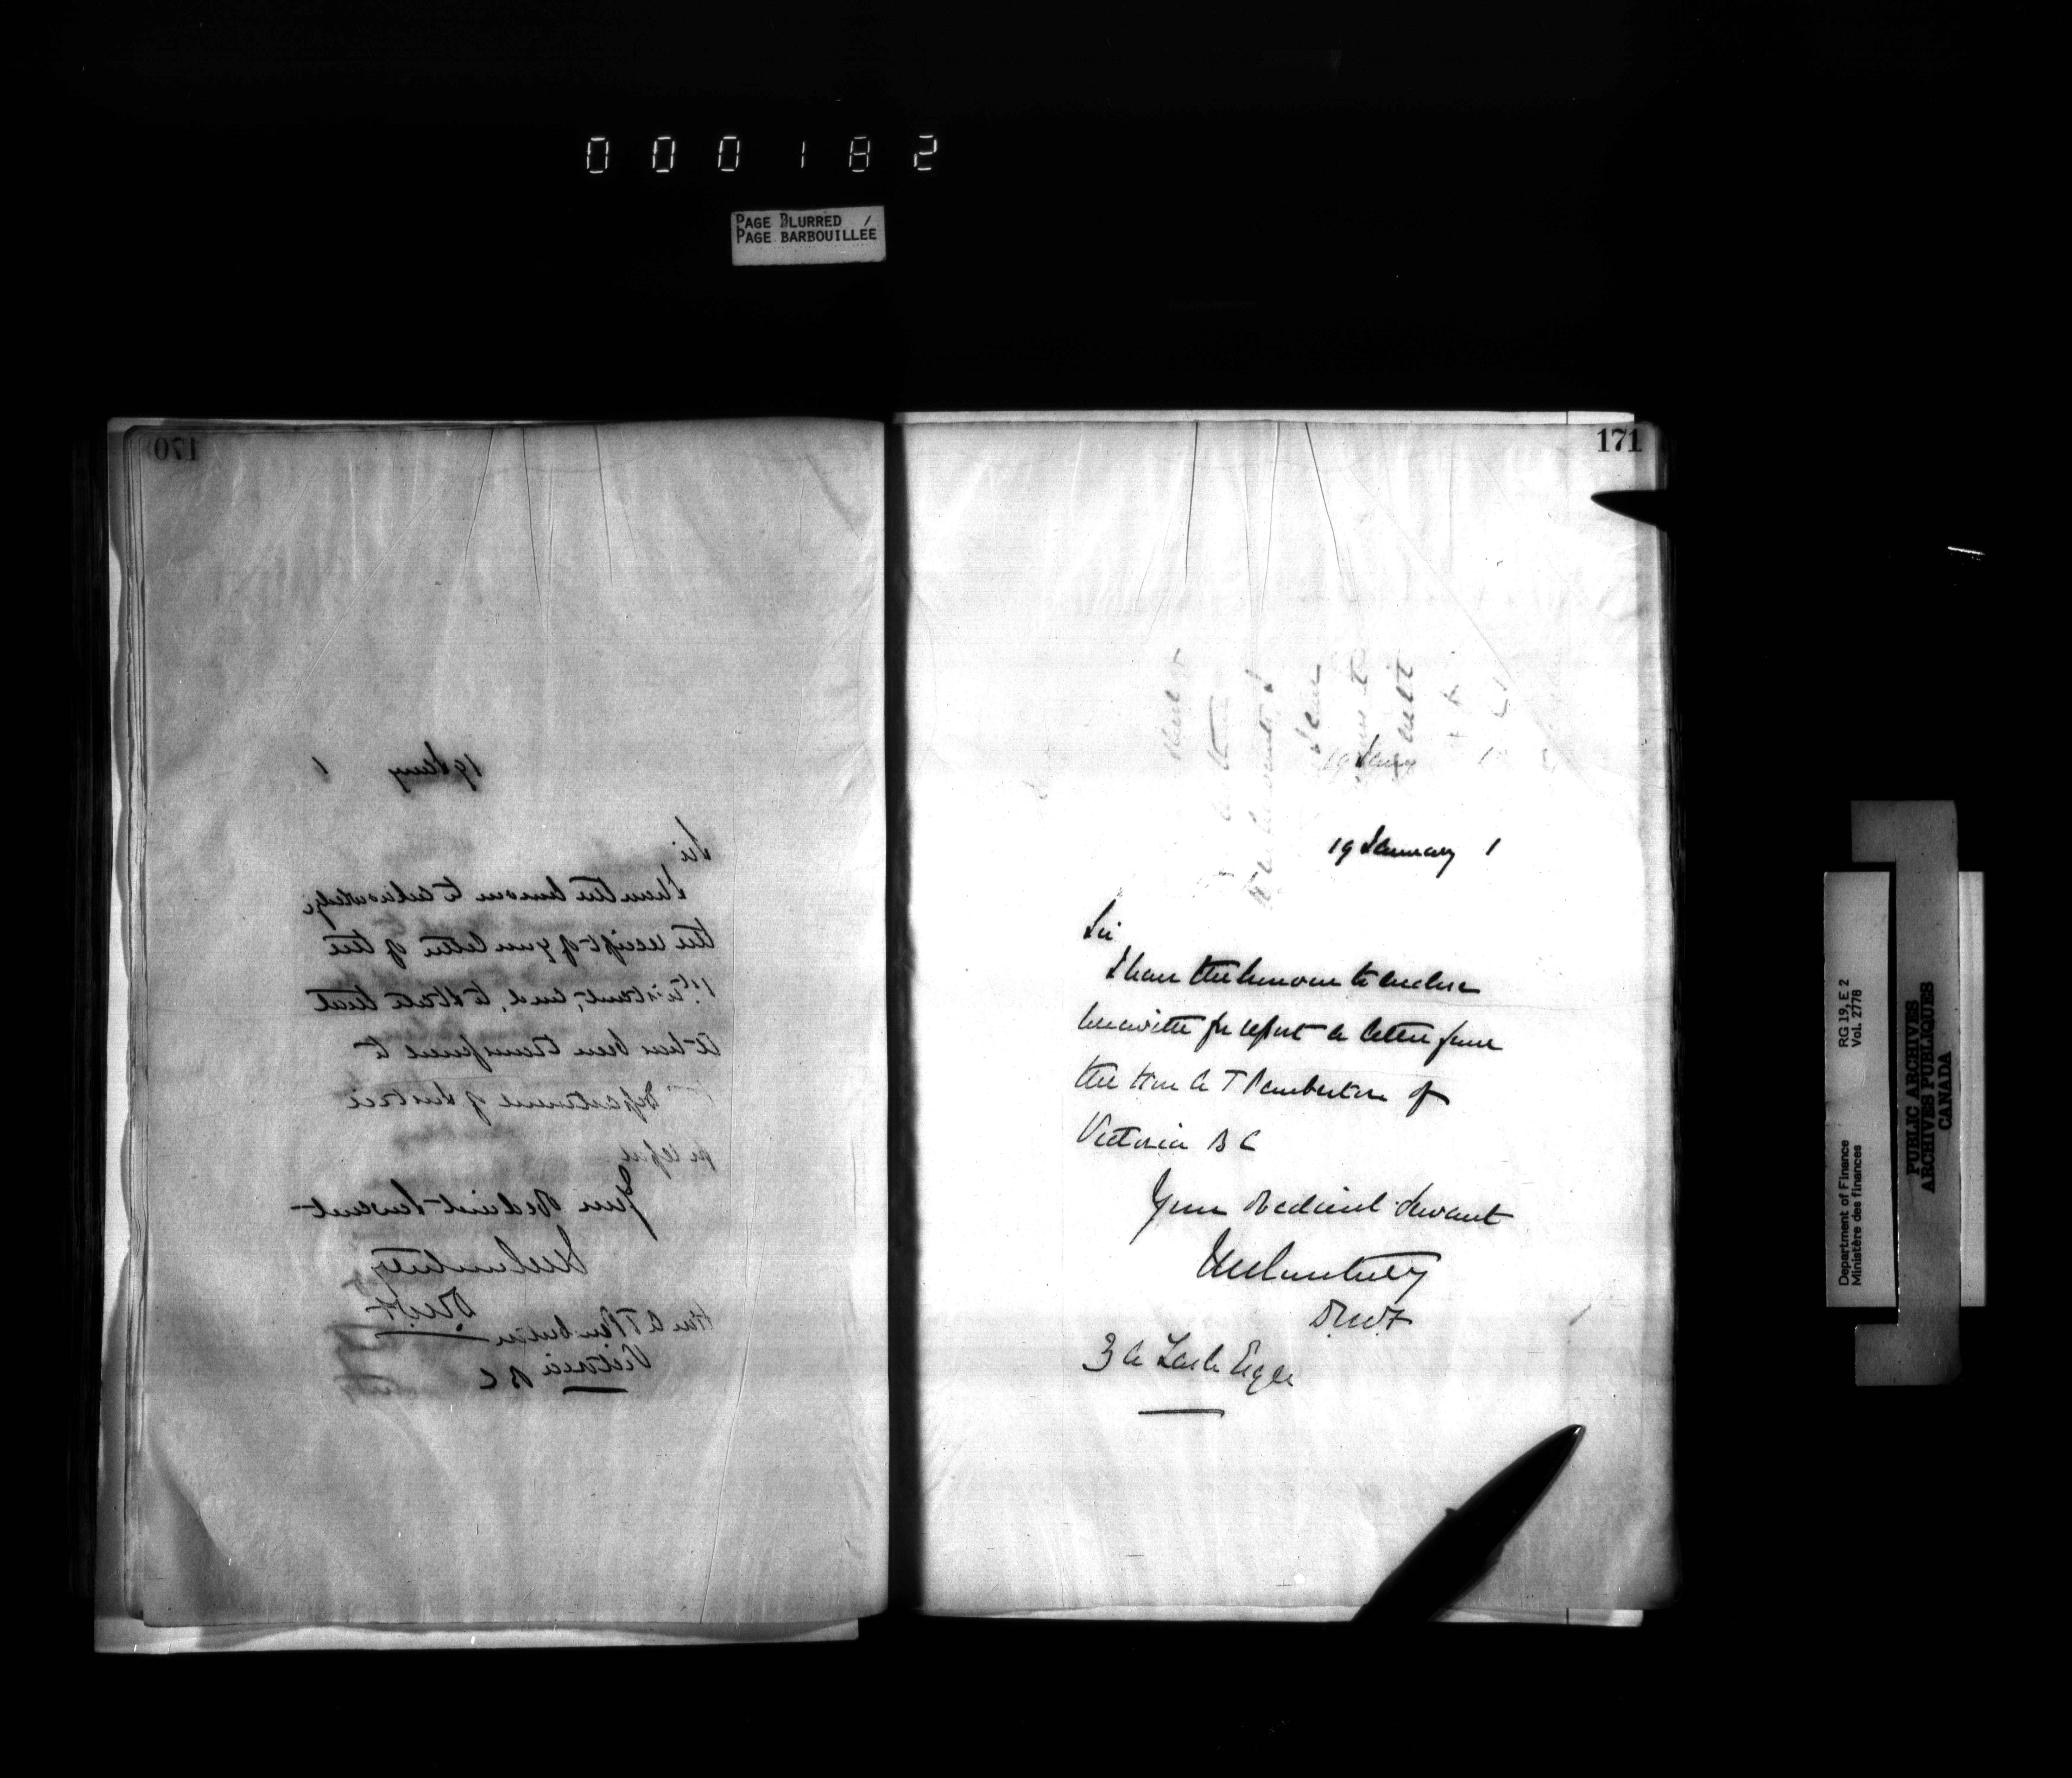 000182
PAGE BLURRED /
PAGE BARBOUILLÉE
170
19 Jany 1
Sir
I have the honour to acknowledge
the receipt of your letter of the
1st instant, and, to state that
it has been transferred to
Department of Justice
for report
Your Obedient Servant
DMF
Hon A T Pemberton
Victoria B C
171
19 Jany 1
19 January 1
Sir
I have the honour to enclose
herewith for report a letter from
the Hon A T Pemberton of
Victoria B C
Your Obedient Servant
DMF
Z A Lash Esqre
RG 19, E 2
Vol. 2778
Department of Finance
Ministère des finances
PUBLIC ARCHIVES
ARCHIVES PUBLIQUES
CANADA